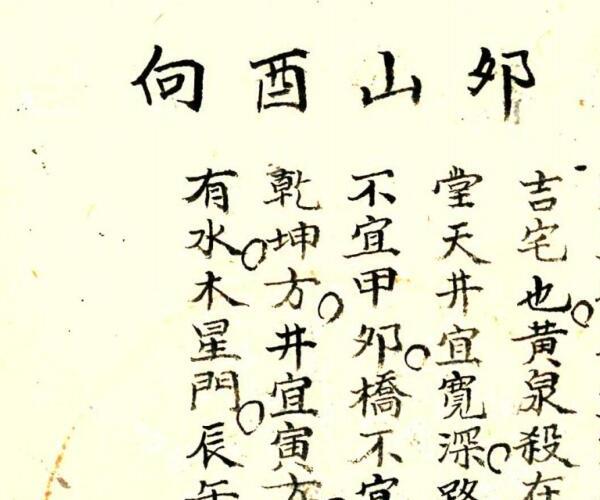 夘山酉向
吉宅也黄泉殺在
堂天井宜寬深路
不宜甲夘橋不宜
乾坤方井宜寅方
有水木星門辰午